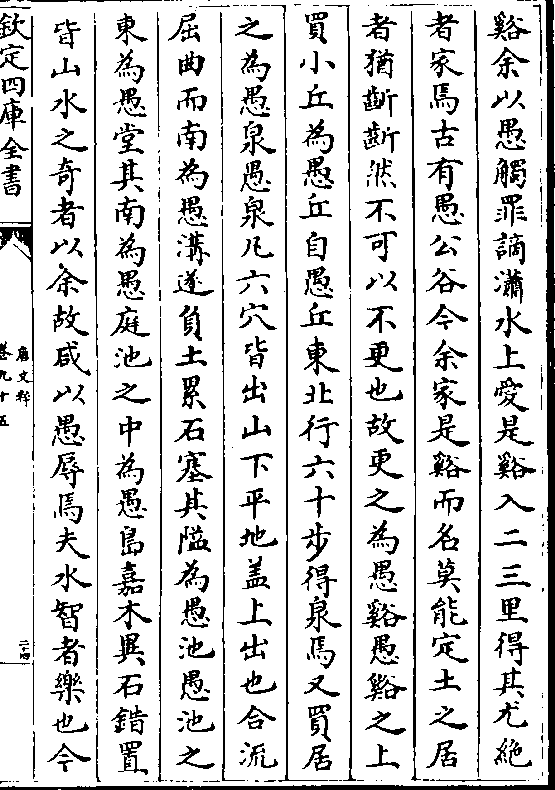 谿余以愚觸罪謫瀟水上愛是谿入二三里得其尤絶
者家焉古有愚公谷今余家是谿而名莫能定土之居
者猶齗齗然不可以不更也故更之為愚谿愚谿之上
買小丘為愚丘自愚丘東北行六十步得泉焉又買居
之為愚泉愚泉凡六穴皆出山下平地蓋上出也合流
屈曲而南為愚溝遂負土累石塞其隘為愚池愚池之
東為愚堂其南為愚庭池之中為愚島嘉木異石錯置
皆山水之奇者以余故咸以愚辱焉夫水智者樂也今
欽定四庫全書
唐文粹
卷九十五
二十四